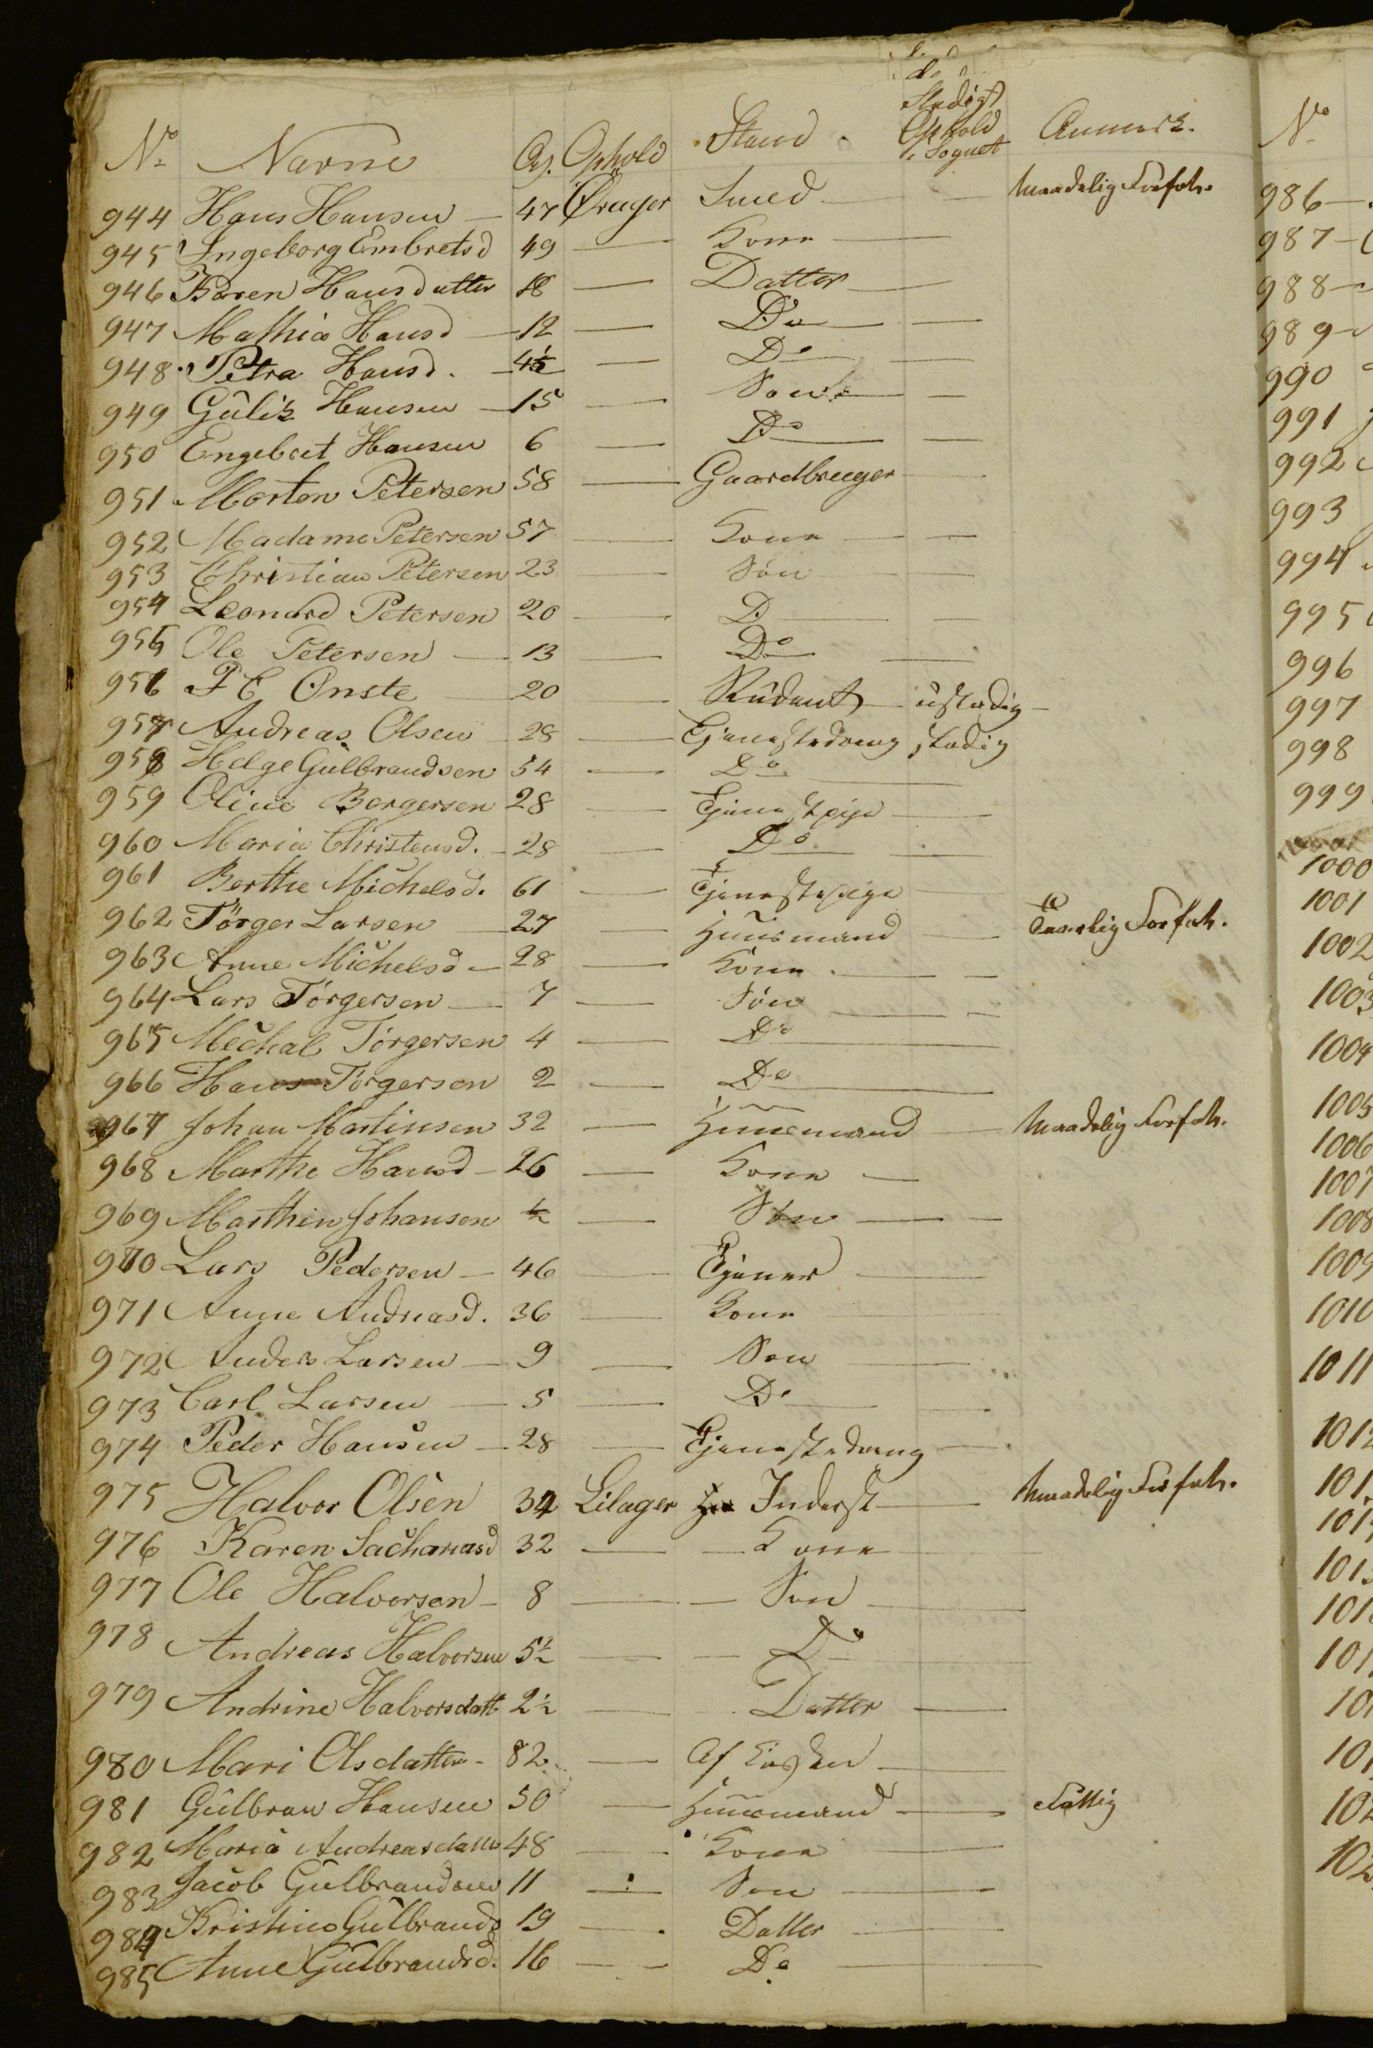 No Navne Al. Ophold Stand Stadigt Ophold i Sognet Anmerk.
944 Hans Hansen — 47 Øruger Smed — Maadelig Forfatn.
945 Ingeborg Embretsd 49 — Kone —
946 Karen Hansdatter 18 — Datter —
947 Mathia Hansd — 12 — Do — —
948 Petra Hansd. — 4½ — Do —
949 Gulik Hansen — 15 — Søn — —
950 Engebret Hansen 6 — Do — —
951 Morten Petersen 58 — Gaardbruger —
952 Madame Petersen 57 — Kone — —
953 Christian Petersen 23 — Søn —
954 Leonard Petersen 20 — D — —
955 Ole Petersen — 13 — Do —
956 P E Onste — 20 — Student — ustadig —
957 Andreas Olsen — 28 — Tjenestedreng stadig
958 Helge Gulbrandsen 54 — Do —
959 Oline Bergersen 28 — Tjenestpige —
960 Maria Christensd. — 28 — Do — —
961 Berthe Michelsd. 61 — Tjenestepige —
962 Törger Larsen — 27 — Huusmand — Taarlig Forfatn.
963 Anne Michelsd — 28 — Kone — —
964 Lars Törgersen — 7 — Søn — —
965 Mechal Törgersen 4 — Do —
966 Hans Törgersen 2 — Do —
967 Johan Martinsen 32 — Huusmand — Maadelig Forfatn.
968 Marthe Hansd — 26 — Kone —
969 Marthin Johansen ½ — Søn — —
970 Lars Pedersen — 46 — Tjener —
971 Anne Andreasd. 36 — Kone —
972 Anders Larsen — 9 — Søn —
973 Carl Larsen — 5 — Do — —
974 Peder Hansen — 28 — Tjenestedreng —
975 Halvor Olsen 34 Lilager Inderst — Maadelig Forfatn.
976 Karen Sachariasd 32 — — Kone —
977 Ole Halvorsen — 8 — — Søn —
978 Andreas Halvorsen 5½ — — Do —
979 Andrine Halvorsdatt 2½ — Datter —
980 Mari Olsdatter — 82 — Af —
981 Gulbran Hansen 50 — Huusmand — Fattig
982 Maria Andreasdatter 48 — Kone —
983 Jacob Gulbrandsen 11 — Søn —
984 Kristine Gulbrands 19 — Datter —
985 Anne Gulbrandsd. 16 — Do —
No
986 —
987 —
988 —
989 —
990
991
992
993
994
995
996
997
998
999
1000
1001
1002
1003
1004
1005
1006
1007
1008
1009
1010
1011